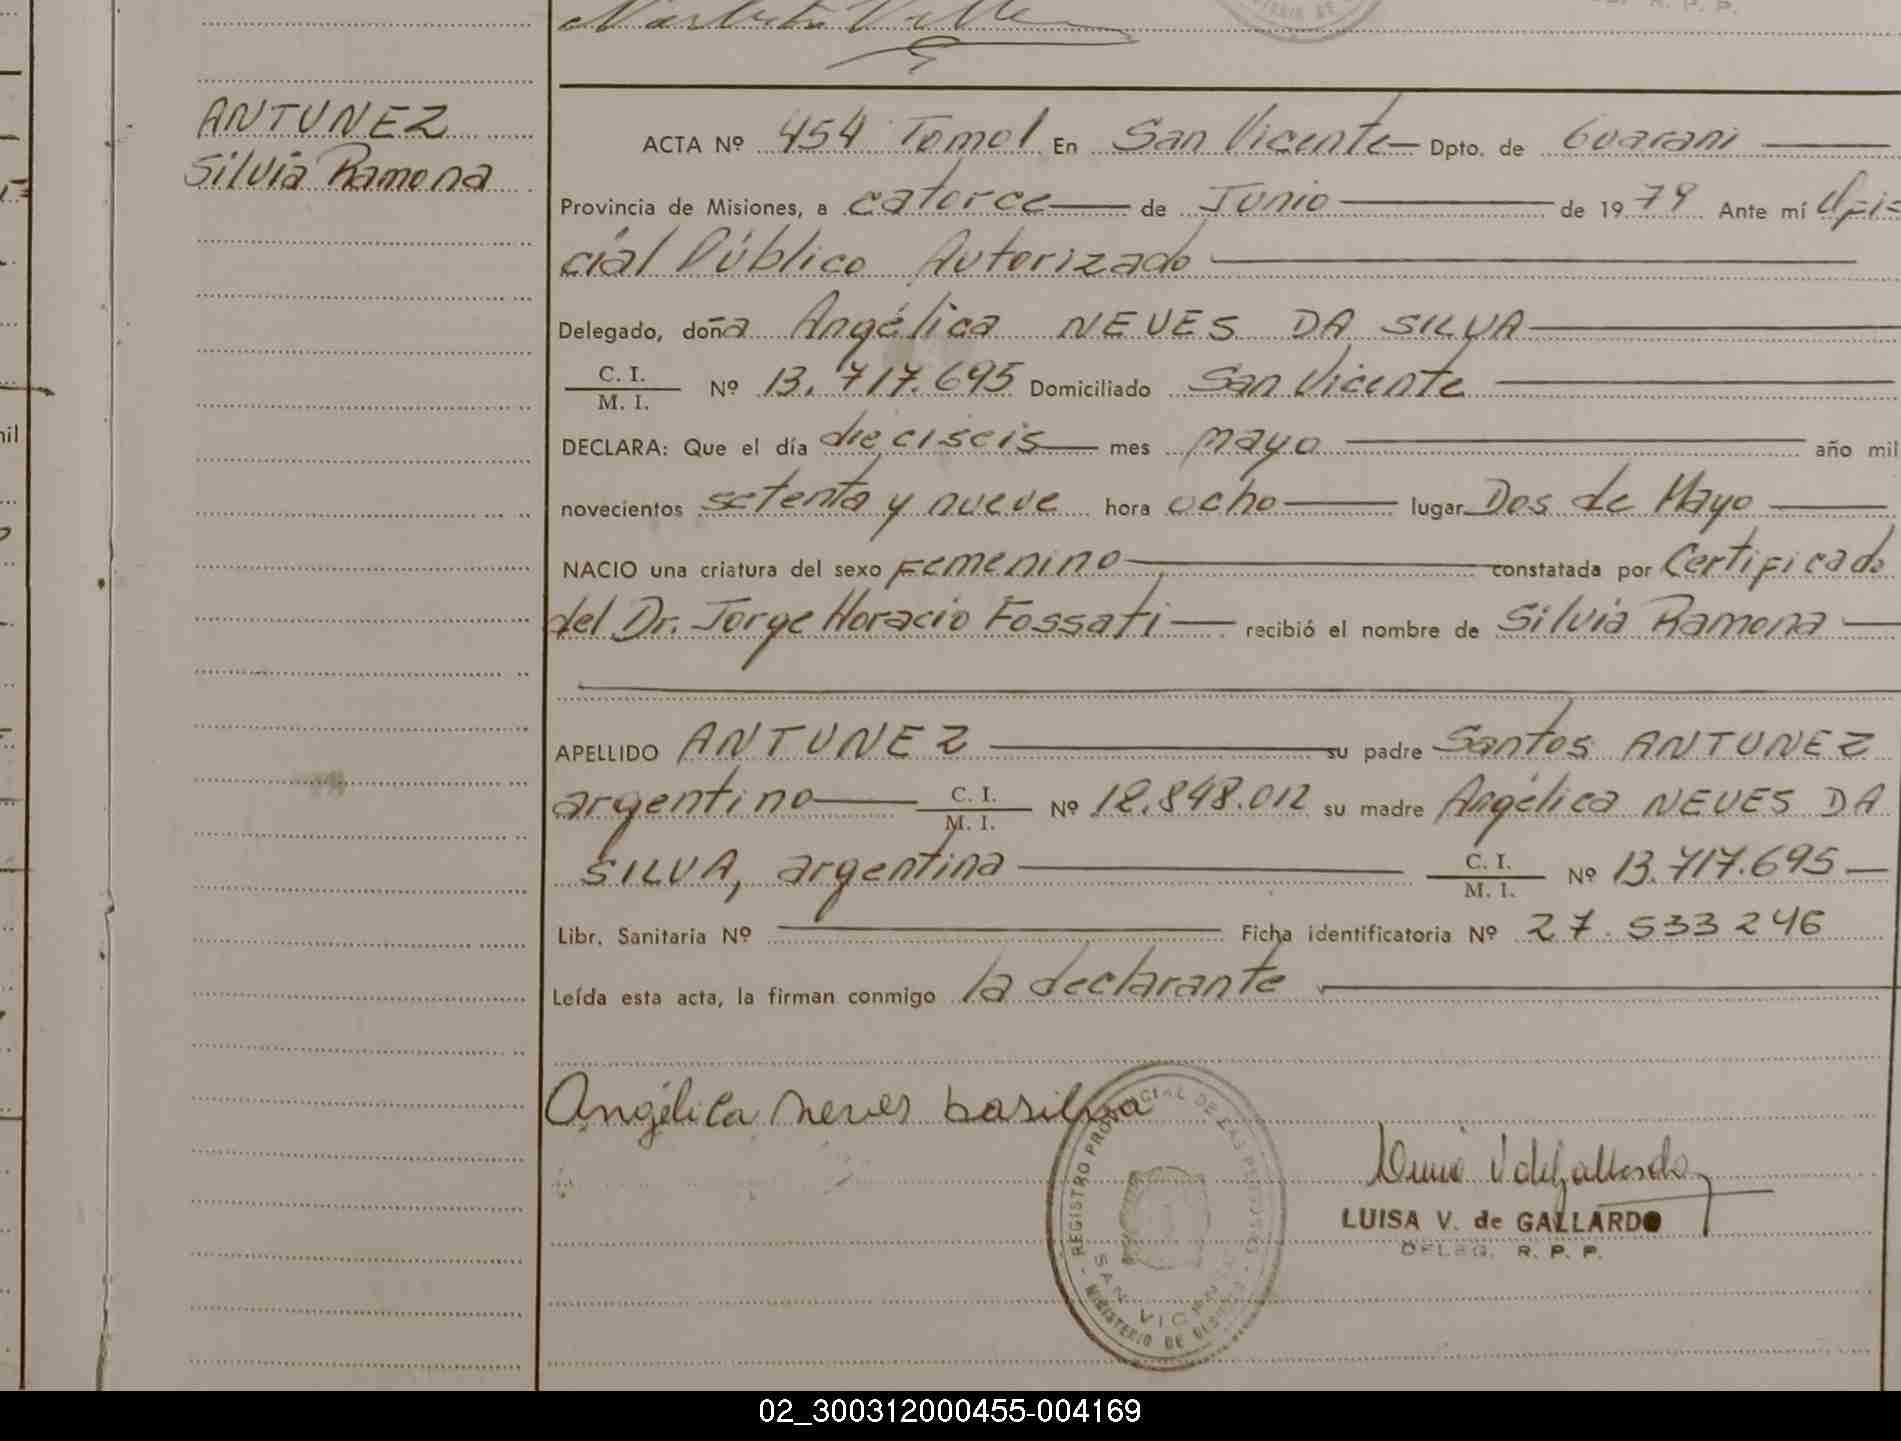 ANTUNEZ
Silvia Ramona
ACTA Nº 454 Tomo I En San Vicente Dpto. de Guarani
Provincia de Misiones, a catorce de Junio de 1979 Ante mí Ofi=
cial Público Autorizado
Delegado, doña Angélica NEVES DA SILVA
C. I.
M. I. Nº 13.717.695 Domiciliado San Vicente
DECLARA: Que el día dieciseis mes mayo año mil
novecientos setenta y nueve hora ocho lugar Dos de Mayo
NACIO una criatura del sexo Femenino constatada por Certificado
del Dr. Jorge Horacio Fossati recibió el nombre de Silvia Ramona
APELLIDO ANTUNEZ su padre Santos ANTUNEZ
argentino C. I. M. I. Nº 12.848.012 su madre Angélica NEVES DA
SILVA, argentina C. I. M. I. Nº 13.717.695
Libr. Sanitaria Nº Ficha identificatoria Nº 27.533246
Leída esta acta, la firman conmigo la declarante
Angélica neves basilva
REGISTRO PROVINCIAL DE LAS PERSONAS
SAN VICENTE
MINISTERIO DE GOBIERNO
LUISA V. de GALLARDO
DELEG. R. P. P.
02_300312000455-004169